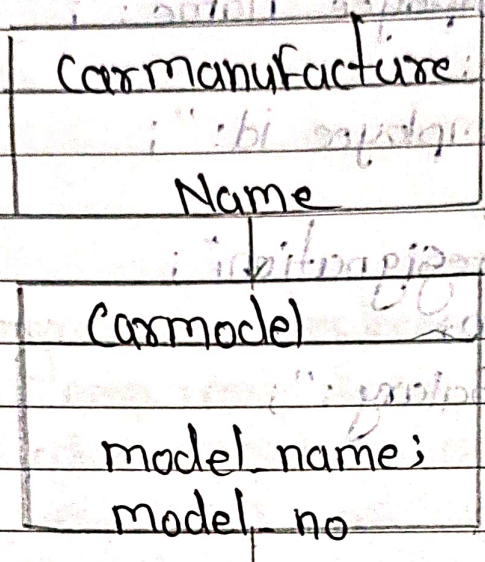 Carmanufacture
Name
Carmodel
model_name;
model_no